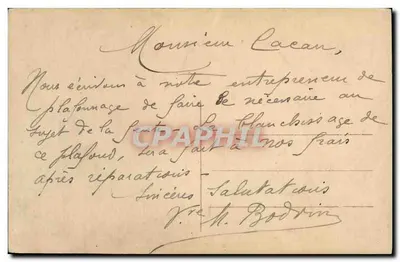 Monsieur Cacan,
Nous écrivons à notre entrepreneur de
plafonnage de faire le nécessaire au
sujet de la Le blanchissage de
ce plafond, sera fait à nos frais
après réparations.
Sincères Salutations
Vve M. Bodvin
CPAPHIL